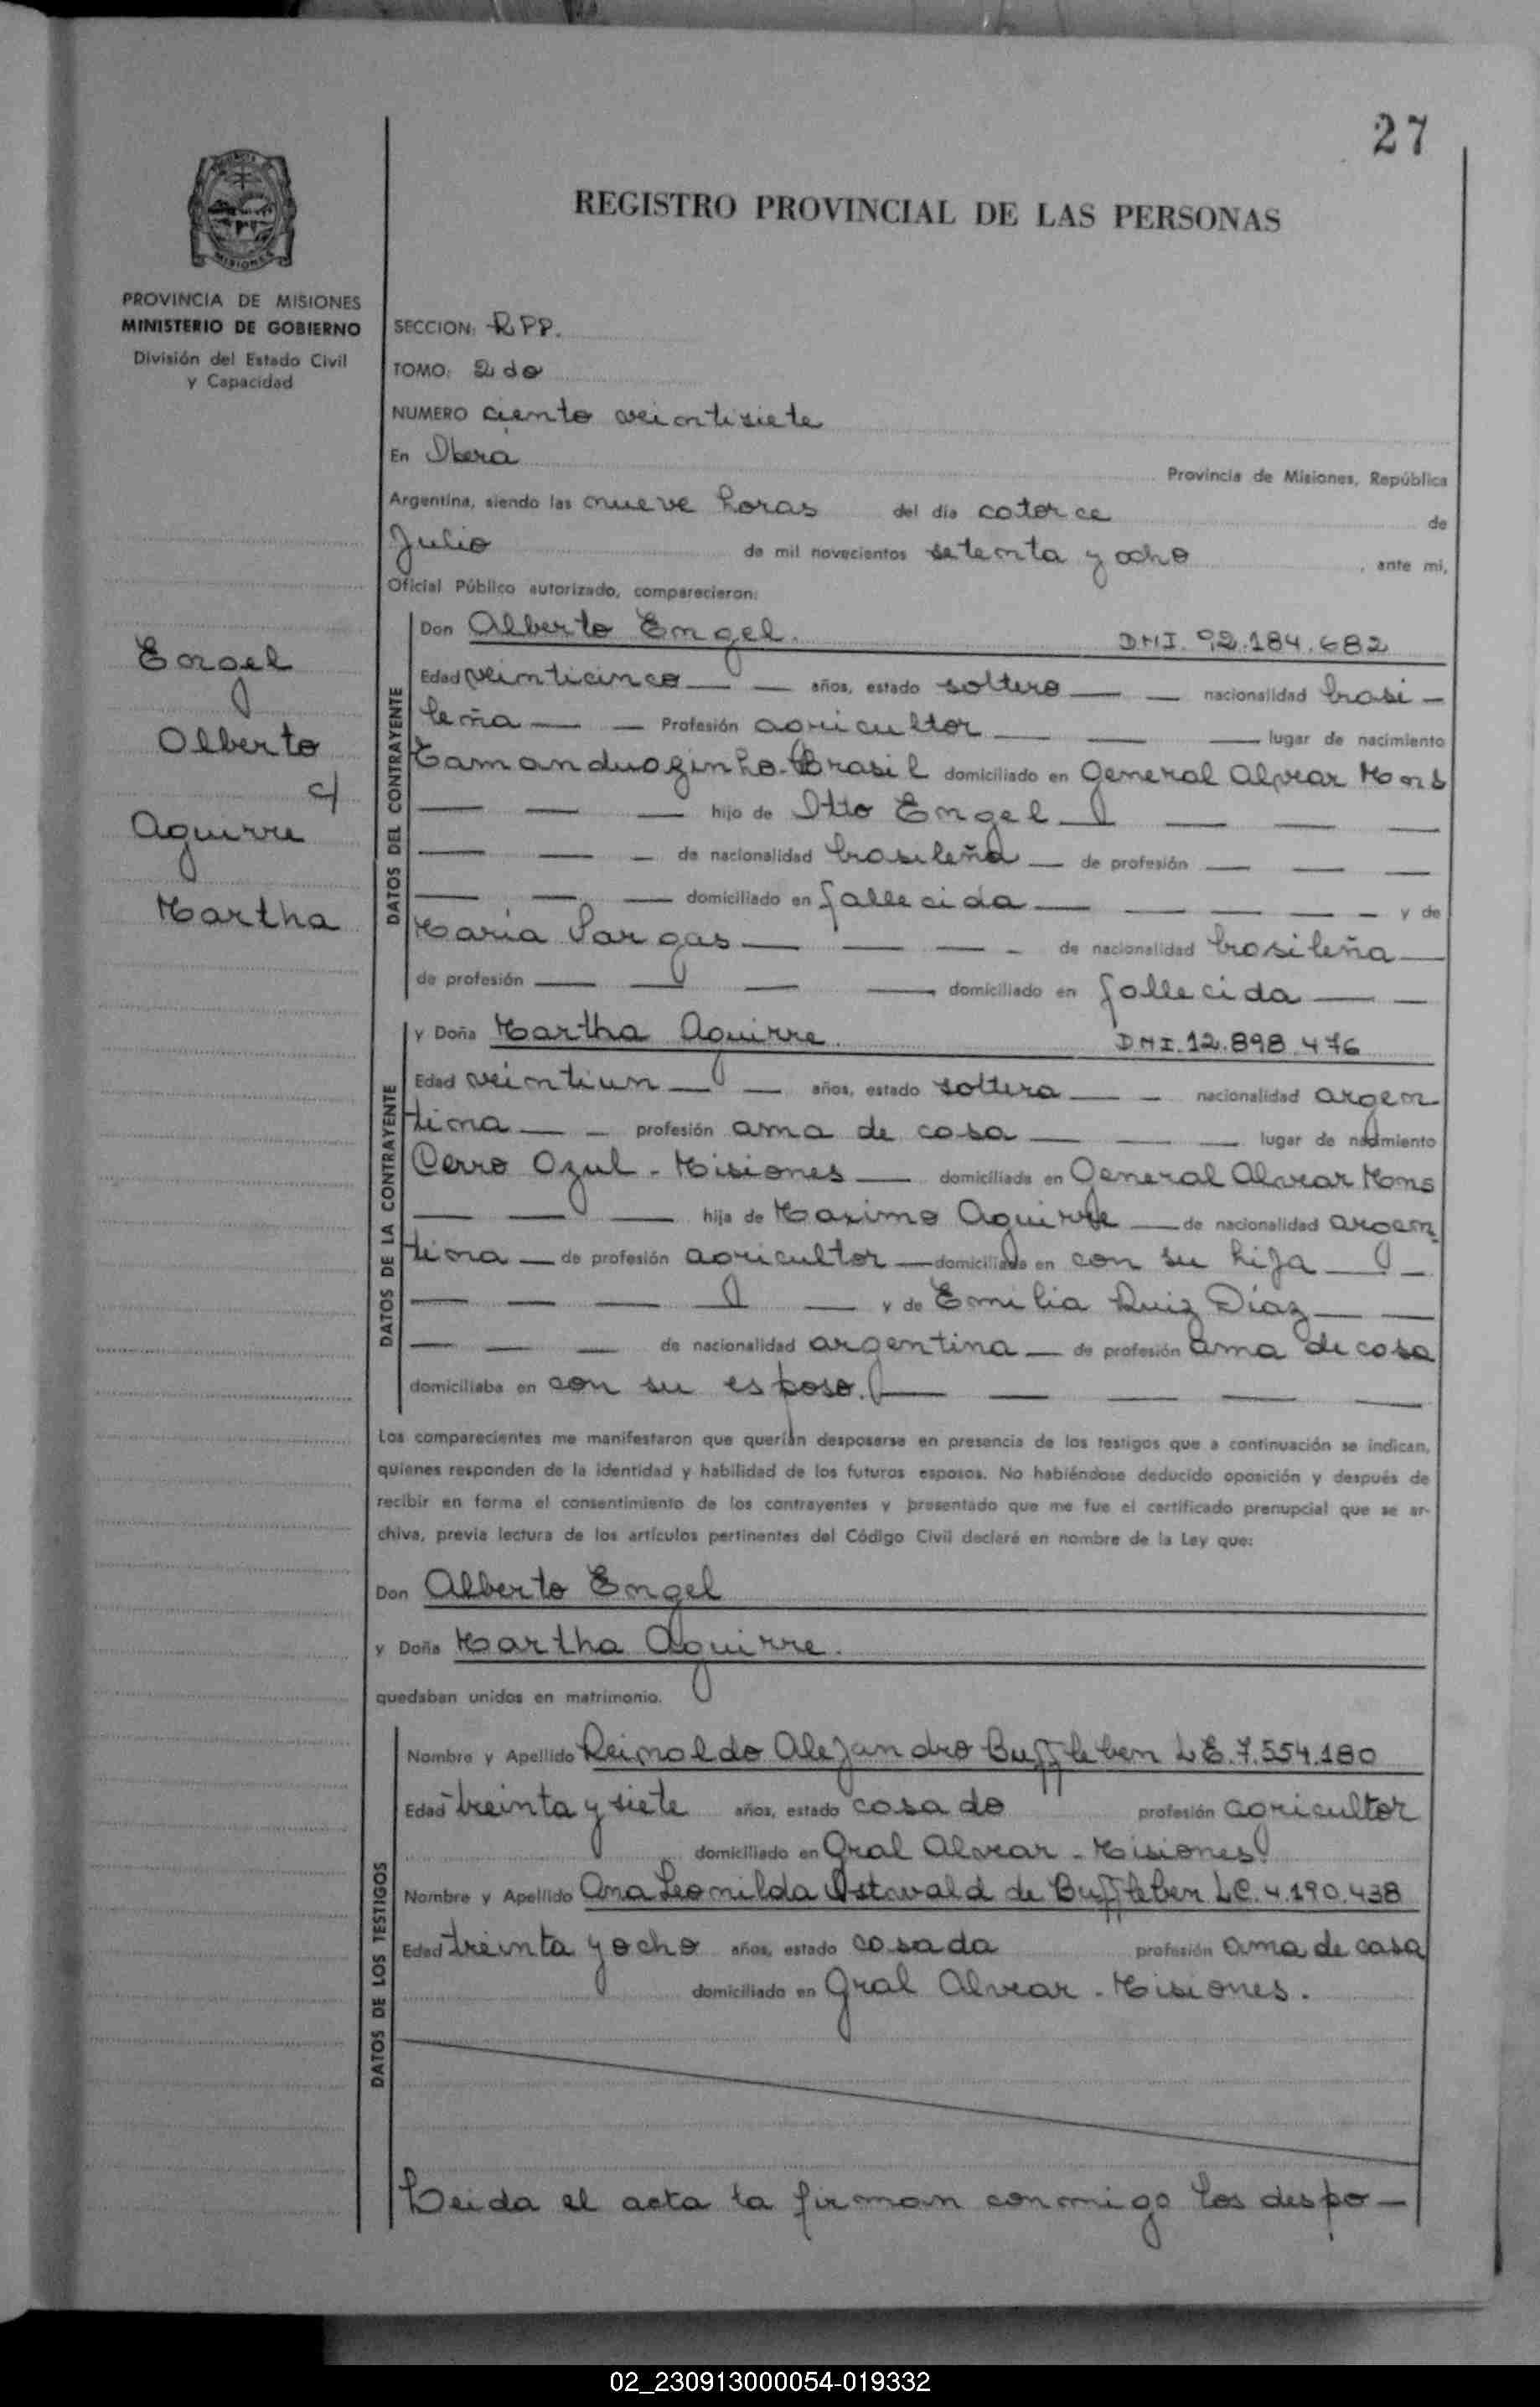 27
REGISTRO PROVINCIAL DE LAS PERSONAS
MISIONES
PROVINCIA DE MISIONES
MINISTERIO DE GOBIERNO
División del Estado Civil
y Capacidad
SECCION: R.P.P.
TOMO: 2do
NUMERO ciento veintisiete
En Oberá Provincia de Misiones, República
Argentina, siendo las nueve horas del día catorce de
Julio de mil novecientos setenta y ocho, ante mi,
Oficial Público autorizado, comparecieron:
Engel
Alberto
c/
Aguirre
Martha
DATOS DEL CONTRAYENTE
Don Alberto Engel. DNI. 92.184.682
Edad veinticinco — — años, estado soltero — — nacionalidad brasi-
leña — — Profesión agricultor — — — lugar de nacimiento
Tamanduazinho-Brasil domiciliado en General Alvear Mons
— — — hijo de Otto Engel — — — —
— — — de nacionalidad brasileña — de profesión — — —
— — — domiciliado en fallecida — — — — — y de
María Vargas — — — — de nacionalidad brasileña —
de profesión — — — — domiciliado en fallecida — —
DATOS DE LA CONTRAYENTE
y Doña Martha Aguirre. DNI. 12.898.476
Edad veintiun — — años, estado soltera — — nacionalidad argen
tina — — profesión ama de casa — — — lugar de nacimiento
Cerro Azul - Misiones — domiciliada en General Alvear Mons
— — — hija de Maximo Aguirre — de nacionalidad argen
tina — de profesión agricultor — domiciliada en con su hija — —
— — — — y de Emilia Ruiz Díaz — —
— — — de nacionalidad argentina — de profesión ama de casa
domiciliaba en con su esposo. — — — —
Los comparecientes me manifestaron que querían desposarse en presencia de los testigos que a continuación se indican,
quienes responden de la identidad y habilidad de los futuros esposos. No habiéndose deducido oposición y después de
recibir en forma el consentimiento de los contrayentes y presentado que me fue el certificado prenupcial que se ar-
chiva, previa lectura de los artículos pertinentes del Código Civil declaré en nombre de la Ley que:
Don Alberto Engel
y Doña Martha Aguirre.
quedaban unidos en matrimonio.
DATOS DE LOS TESTIGOS
Nombre y Apellido Reinaldo Alejandro Buffleben L.E. 7.554.180
Edad treinta y siete años, estado casado profesión agricultor
domiciliado en Gral Alvear - Misiones
Nombre y Apellido Ana Leonilda Ostwald de Buffleben L.C. 4.190.438
Edad treinta y ocho años, estado casada profesión ama de casa
domiciliado en Gral Alvear - Misiones.
Leida el acta la firman conmigo los despo-
02_230913000054-019332